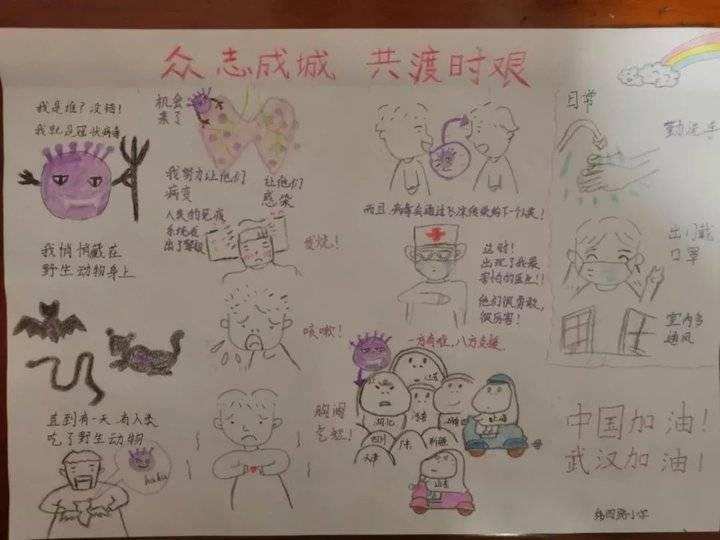 众志成城 共渡时艰
我是谁？没错！
我就是冠状病毒
我悄悄藏在
野生动物身上
直到有一天,有人类
吃了野生动物
haha
机会
来了
我努力让他们
病变
让他们
感染
人类的免疫
系统发
出了警报
发烧！
咳嗽！
胸闷
气短！
而且,病毒会通过飞沫传染给下一个人类！
这时！
出现了我最
害怕的医生！！
他们很勇敢,
很厉害！
一方有难,八方支援
江苏
河北
上海
四川
广东
新疆
天津
山东
日常
勤洗手
出门戴
口罩
室内多
通风
中国加油！
武汉加油！
纬四路小学